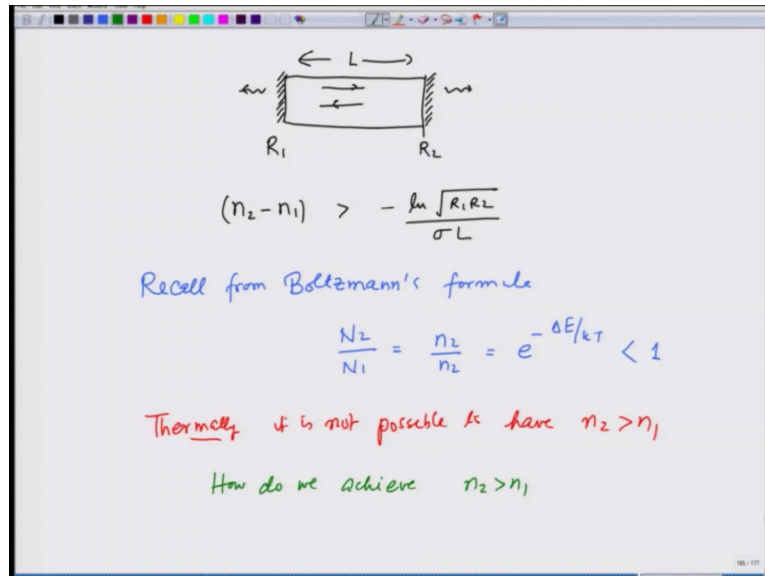 ← L →
R₁ R₂
(n₂-n₁) > - ln √R₁R₂ / σL
Recall from Boltzmann's formula
N₂/N₁ = n₂/n₂ = e^(-ΔE/kT) < 1
Thermally it is not possible to have n₂>n₁
How do we achieve n₂>n₁